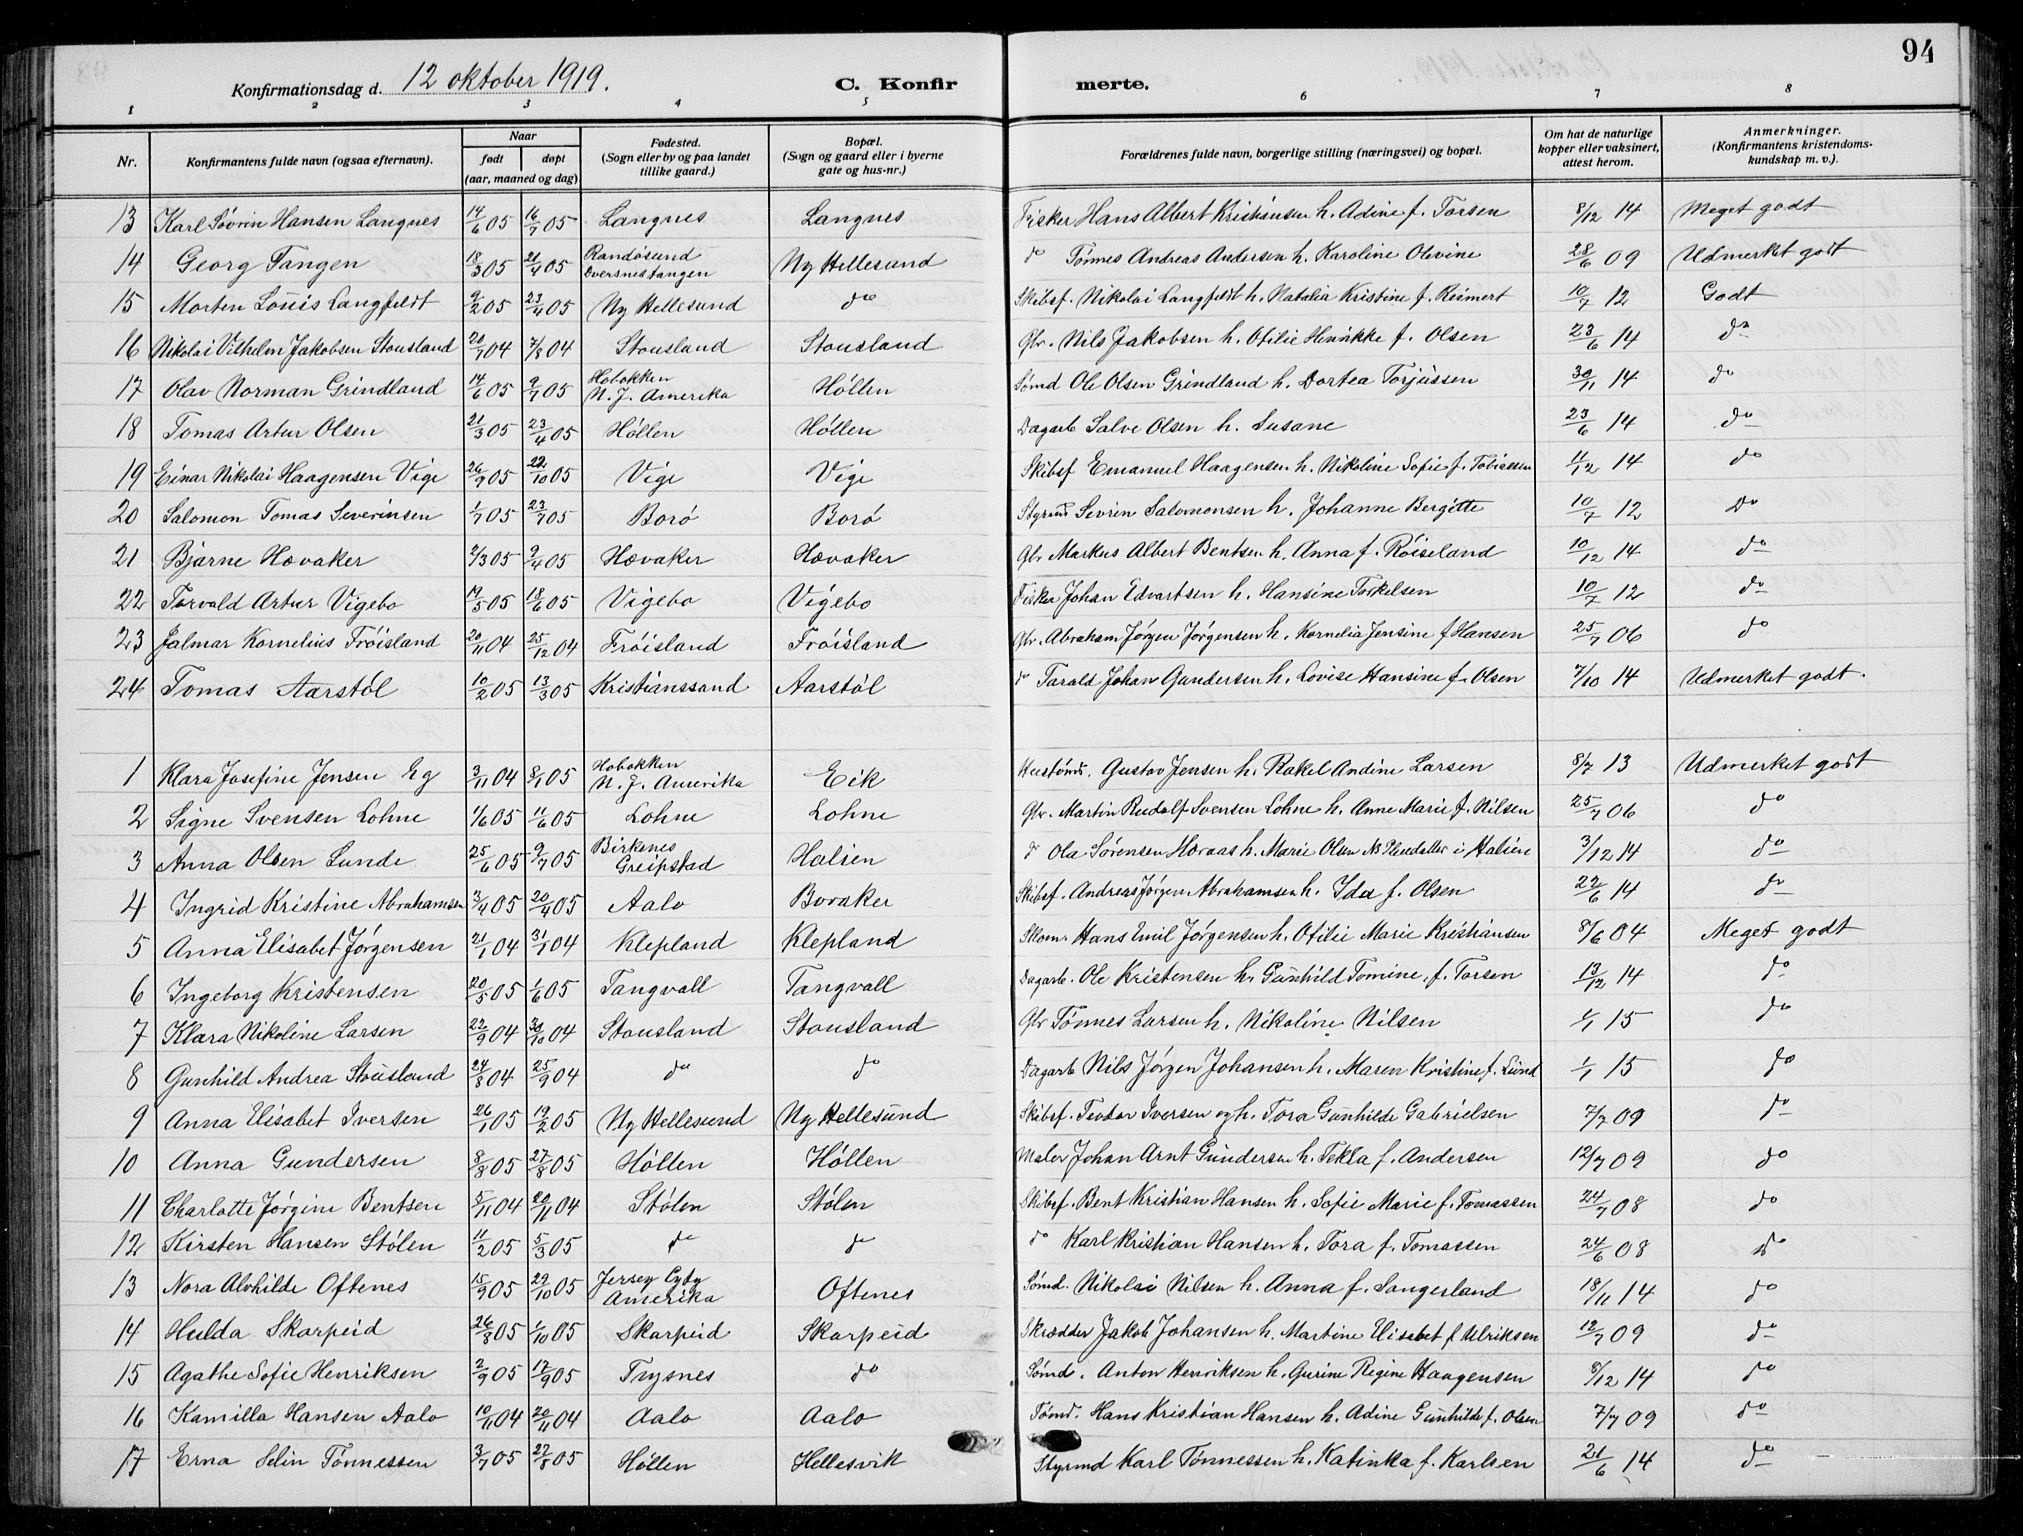 94
Konfirmationsdag d. 12 oktober 1919. C. Konfirmerte.
1 2 3 4 5 6 7 8
Nr. | Konfirmantens fulde navn (ogsaa efternavn). | Naar født døpt (aar, maaned og dag) | Fødested. (Sogn eller by og paa landet tillike gaard.) | Bopæl. (Sogn og gaard eller i byerne gate og hus-nr.) | Forældrenes fulde navn, borgerlige stilling (næringsvei) og bopæl. | Om hat de naturlige kopper eller vaksinert, attest herom. | Anmerkninger. (Konfirmantens kristendomskundskap m. v.).
13 Karl Sövrin Hansen Langnes 14/6 05 16/7 05 Langnes Langnes Fisker Hans Albert Kristiansen h. Adine f. Torsen 8/12 14 Meget godt
14 Georg Tangen 18/3 05 21/4 05 Randösund Dversnestangen Ny Hellesund do Tönnes Andreas Andersen h. Karoline Olevine 28/6 09 Udmerket godt
15 Morten Louis Langfeldt 9/2 05 23/4 05 Ny Hellesund do Skibsf. Nikolai Langfeldt h. Natalia Kristine f. Reimert 10/7 12 Godt
16 Nikolai Vilhelm Jakobsen Stousland 20/7 04 7/8 04 Stousland Stousland Gbr. Nils Jakobsen h. Otilie Henrikke f. Olsen 23/6 14 do
17 Olav Norman Grindland 14/6 05 9/7 05 Hobokken N. J. Amerika Höllen Sömd Ole Olsen Grindland h. Dortea Torjussen 30/11 14 do
18 Tomas Artur Olsen 21/3 05 23/4 05 Höllen Höllen Dagarb Salve Olsen h. Susane 23/6 14 do
19 Einar Nikolai Haagensen Vige 26/9 05 22/10 05 Vige Vige Skibsf Emanuel Haagensen h. Nikoline Sofie f. Tobiassen 11/12 14 do
20 Salomon Tomas Severinsen 1/7 05 23/7 05 Borö Borö Styrmd Sevrin Salomonsen h. Johanne Bergitte 10/7 12 do
21 Bjarne Hævaker 2/3 05 9/4 05 Hævaker Hævaker Gbr Markus Albert Bentsen h. Anna f. Röiseland 10/12 14 do
22 Torvald Artur Vigebo 14/5 05 18/6 05 Vigebo Vigebo Fisker Johan Edvartsen h. Hansine Torkelsen 10/7 12 do
23 Jalmar Kornelius Fröisland 20/11 04 25/12 04 Fröisland Fröisland Gbr. Abraham Jörgen Jörgensen h. Kornelia Jensine f Hansen 25/7 06 do
24 Tomas Aarstöl 10/2 05 13/3 05 Kristianssand Aarstöl do Tarald Johan Gundersen h. Lovise Hansine f. Olsen 7/10 14 Udmerket godt.
1 Klara Josefine Jensen Eg 3/11 04 8/1 05 Hobokken N. J. Amerika Eik Gustav Jensen h. Rakel Andine Larsen 8/7 13 Udmerket godt
2 Signe Svensen Lohne 1/6 05 11/6 05 Lohne Lohne Gbr. Martin Rudolf Svensen Lohne h. Anne Marie f. Nilsen 25/7 06 do
3 Anna Olsen Lunde 25/6 05 9/7 05 Birkenes Greipstad Halsen do Ola Sörensen h. Marie Olsen i Halsen 3/12 14 do
4 Ingrid Kristine Abrahamsen 3/4 05 20/4 05 Aalo Boraker Skibsf. Andreas Jörgen Abrahamsen h. Ida f. Olsen 22/6 14 do
5 Anna Elisabet Jörgensen 21/1 04 31/1 04 Klepland Klepland Skom. Hans Emil Jörgensen h. Otilie Marie Kristiansen 8/6 04 Meget godt
6 Ingeborg Kristensen 20/5 05 1/6 05 Tangvall Tangvall Dagarb. Ole Kristensen h. Gunhild Tomine f. Torsen 13/12 14 do
7 Klara Nikoline Larsen 22/9 04 30/10 04 Stousland Stousland Gbr Tönnes Larsen h. Nikoline Nilsen 1/1 15 do
8 Gunhild Andrea Stousland 24/8 04 25/9 04 do do Dagarb Nils Jörgen Johansen h. Maren Kristine f. Lund 1/1 15 do
9 Anna Elisabet Iversen 26/1 05 19/2 05 Ny Hellesund Ny Hellesund Skibsf. Teodor Iversen og h. Tora Gunhilde Gabrielsen 7/7 09 do
10 Anna Gundersen 8/8 05 27/8 05 Höllen Höllen Maler Johan Arnt Gundersen h. Tekla f. Andersen 12/7 09 do
11 Charlotte Jörgine Bentsen 5/11 04 20/11 04 Stölen Stölen Skibsf. Bent Kristian Hansen h. Sofie Marie f. Tomassen 24/7 08 do
12 Kirsten Hansen Stölen 11/2 05 5/3 05 do do do Karl Kristian Hansen h. Tora f. Tomassen 24/6 08 do
13 Nora Alvhilde Oftenes 15/9 05 29/10 05 Jersey Cyty Amerika Oftenes Sömd. Nikolai Nilsen h. Anna f. Sangesland 18/11 14 do
14 Hulda Skarpeid 26/8 05 1/10 05 Skarpeid Skarpeid Skrædder Jakob Johansen h. Martine Elisabet f. Ulriksen 12/7 09 do
15 Agathe Sofie Henriksen 2/9 05 17/9 05 Trysnes do Sömd. Anton Henriksen h. Gurine Regine Haagensen 8/12 14 do
16 Kamilla Hansen Aalo 10/11 04 20/11 04 Aalo Aalo Tömd. Hans Kristian Hansen h. Adine Gunhilde f. Olsen 7/7 09 do
17 Erna Selin Tönnessen 3/7 05 27/8 05 Höllen Hellesvik Styrmd Karl Tönnessen h. Katinka f. Karlsen 21/6 14 do